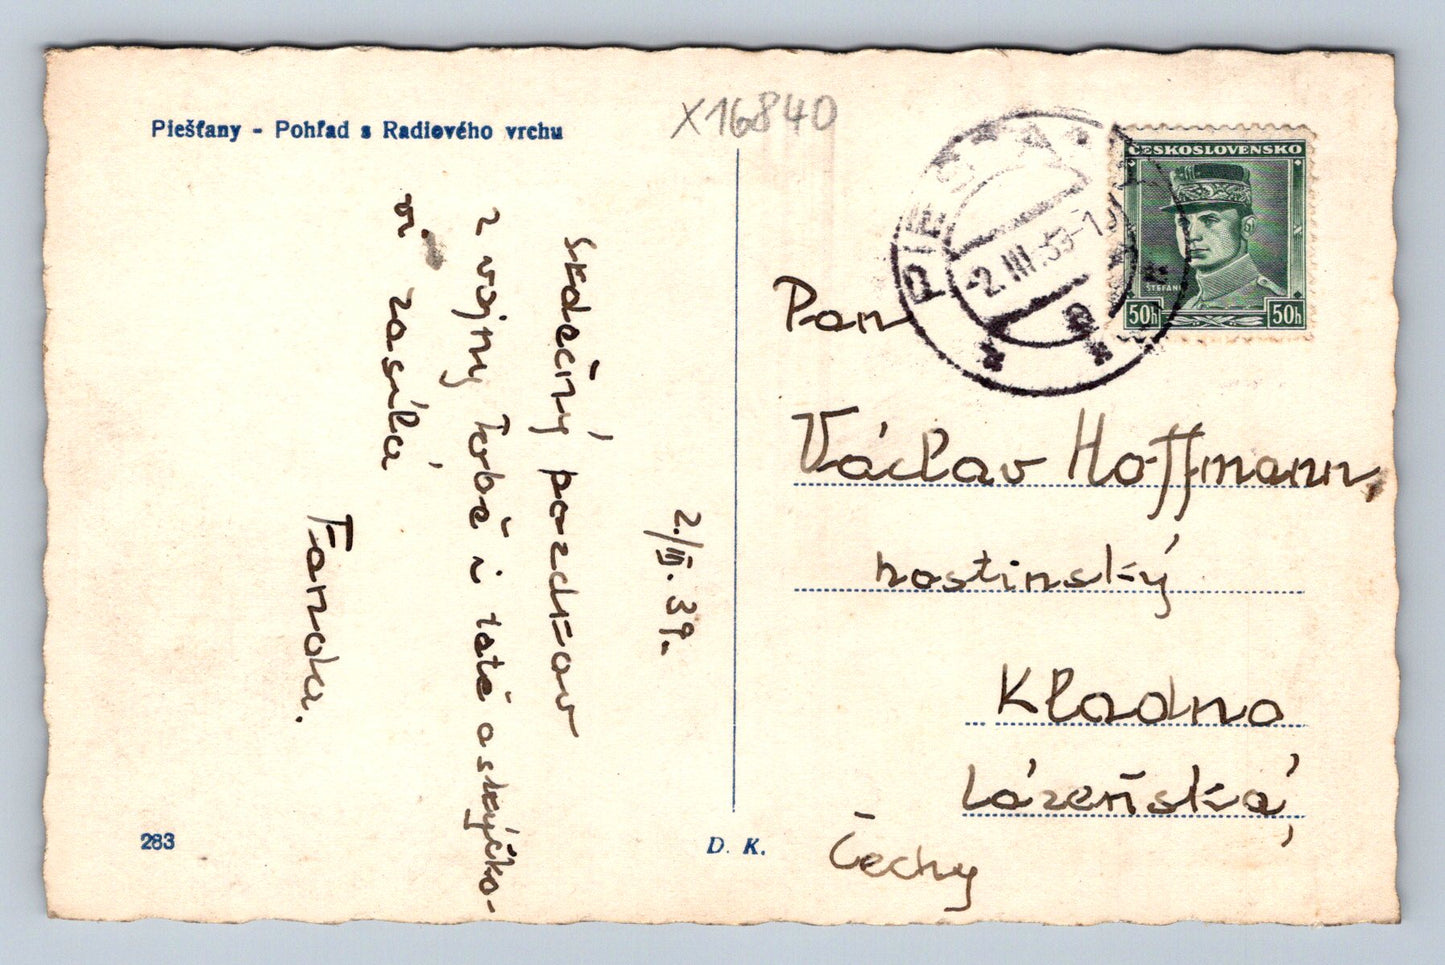 Piešťany - Pohľad s Radiového vrchu
X16840
ČESKOSLOVENSKO
ŠTEFÁNIK
50h 50h
-2.III.39-1
2./III. 39.
Srdečný pozdrav
z vojny Tobě i tatě
zasílá
Fanda.
Pan
Václav Hoffmann,
hostinský
Kladno
Lázeňská,
Čechy
283
D. K.